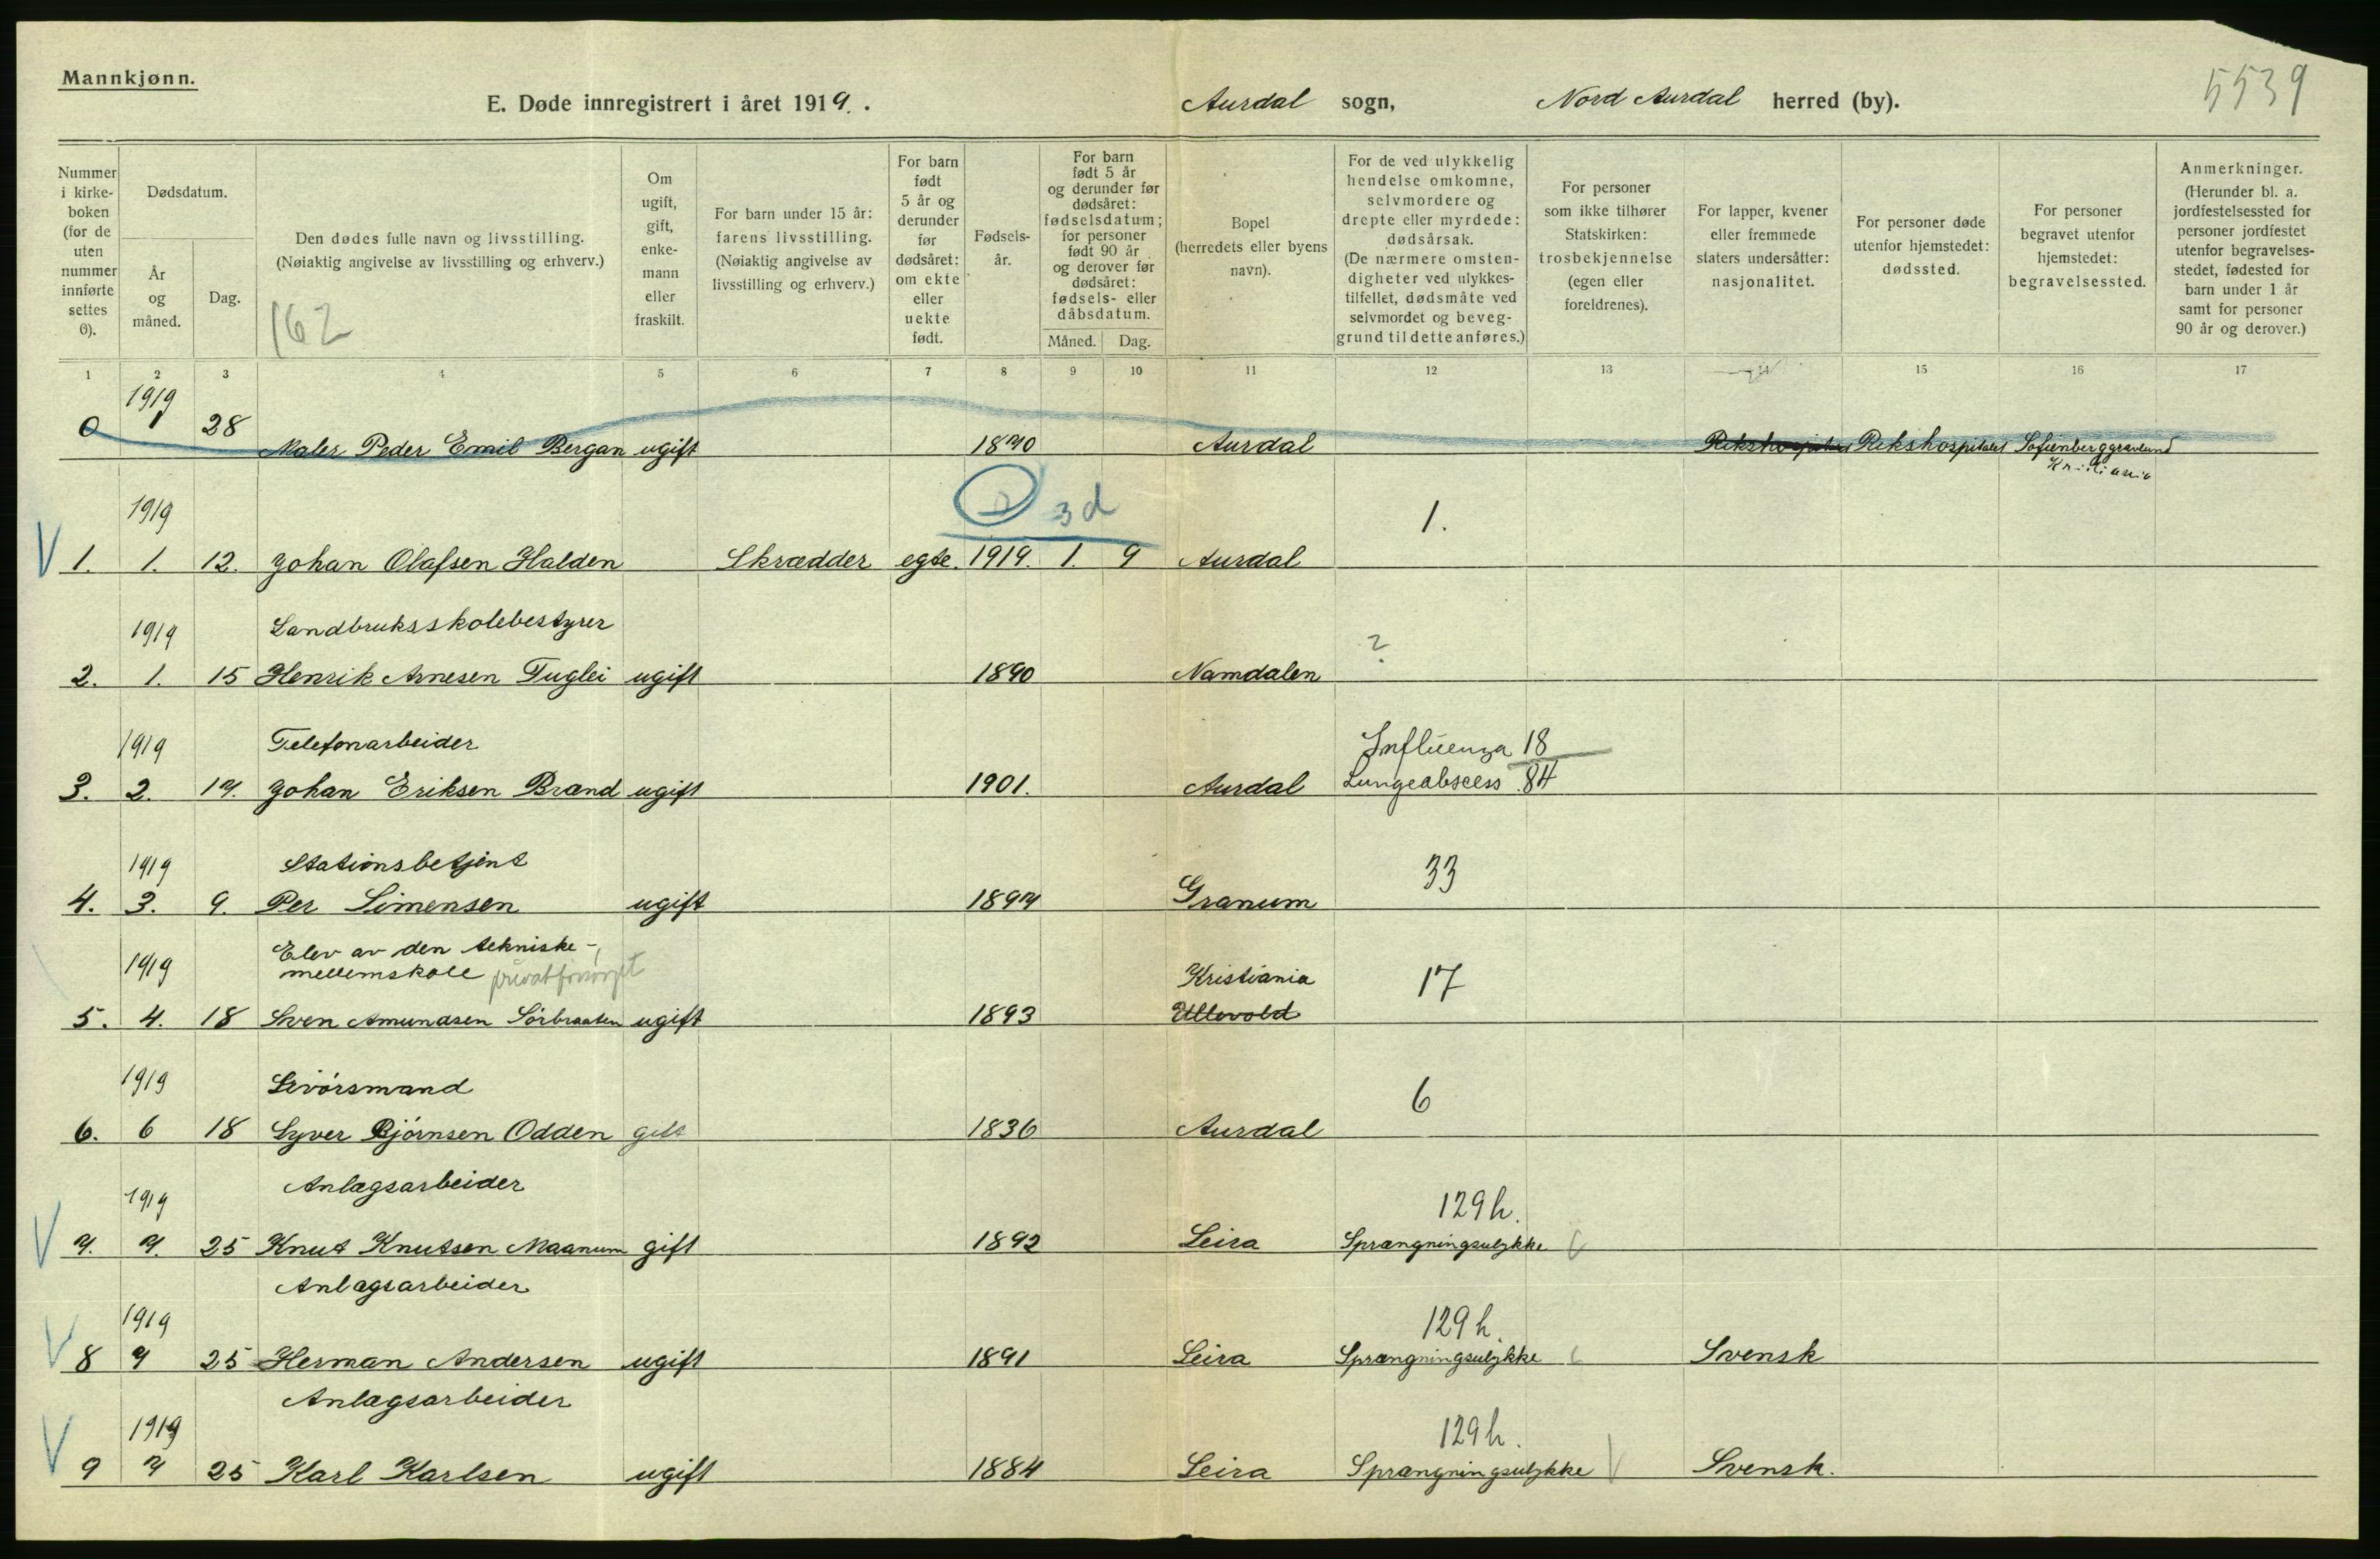 Mannkjønn.
E. Døde innregistrert i året 1919. .
Aurdal sogn,
Nord Aurdal herred (by).
5539
Nummer
i kirke-
boken
(for de
uten
nummer
innførte
settes
0).
Dødsdatum.
År
og
måned.
Dag.
Den dødes fulle navn og livsstilling.
(Nøiaktig angivelse av livsstilling og erhverv.)
162
Om
ugift,
gift,
enke-
mann
eller
fraskilt.
For barn under 15 år:
farens livsstilling.
(Nøiaktig angivelse av
livsstilling og erhverv.)
For barn
født
5 år og
derunder
før
dødsåret:
om ekte
eller
uekte
født.
Fødsels-
år.
For barn
født 5 år
og derunder før
dødsåret:
fødselsdatum;
for personer
født 90 år
og derover før
dødsåret:
fødsels- eller
dåbsdatum.
Måned.
Dag.
Bopel
(herredets eller byens
navn).
For de ved ulykkelig
hendelse omkomne,
selvmordere og
drepte eller myrdede:
dødsårsak.
(De nærmere omsten-
digheter ved ulykkes-
tilfellet, dødsmåte ved
selvmordet og beveg-
grund til dette anføres.)
For personer
som ikke tilhører
Statskirken:
trosbekjennelse
(egen eller
foreldrenes).
For lapper, kvener
eller fremmede
staters undersåtter:
nasjonalitet.
For personer døde
utenfor hjemstedet:
dødssted.
For personer
begravet utenfor
hjemstedet:
begravelsessted.
Anmerkninger.
(Herunder bl. a.
jordfestelsessted for
personer jordfestet
utenfor begravelses-
stedet, fødested for
barn under 1 år
samt for personer
90 år og derover.)
1 2 3 4 5 6 7 8 9 10 11 12 13 14 15 16 17
1919
0 1 28 Maler Peder Emil Bergan ugift 1870 Aurdal Rikshospitalet Rikshospitalet Sofienberg gravlund
Kristiania
3 d
1919 1.
1. 1. 12. Johan Olafsen Halden Skrædder egte. 1919. 1. 9 Aurdal
1919 Landbruksskolebestyrer ?
2. 1. 15 Henrik Arnesen Fuglei ugift 1890 Namdalen
1919 Telefonarbeider Influenza 18
3. 2. 17. Johan Eriksen Brænd ugift 1901. Aurdal Lungeabscess 84
1919 Stationsbetjent 33
4. 3. 9. Per Simensen ugift 1897 Granum
Elev av den tekniske-
1919 mellemskole privat forsørget Kristiania 17
5. 4. 18 Sven Amundsen Sörbraaten ugift 1893 Ullevold
1919 Livörsmand 6
6. 6 18 Syver Björnsen Odden gift 1836 Aurdal
1919 Anlægsarbeider 129 h.
7. 7. 25 Knut Knutsen Maanum gift 1892 Leira Sprængningsulykke
Anlægsarbeider
1919 129 h.
8 7 25 Herman Andersen ugift 1891 Leira Sprængningsulykke Svensk
Anlægsarbeider
1919 129 h.
9 7 25 Karl Karlsen ugift 1884 Leira Sprængningsulykke Svensk.